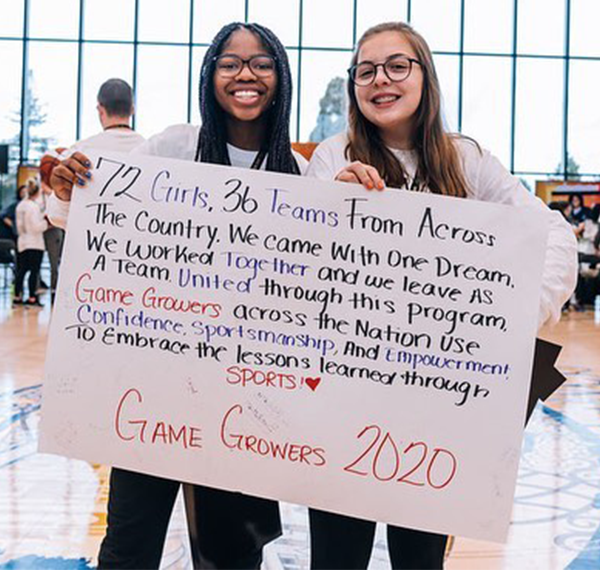 72 Girls, 36 Teams From Across
The Country. We came With One Dream.
We worked Together and we leave AS
A Team. United through this program,
Game Growers across the Nation use
Confidence, Sportsmanship, And Empowerment
To Embrace the lessons learned through
SPORTS!♥
GAME GROWERS 2020